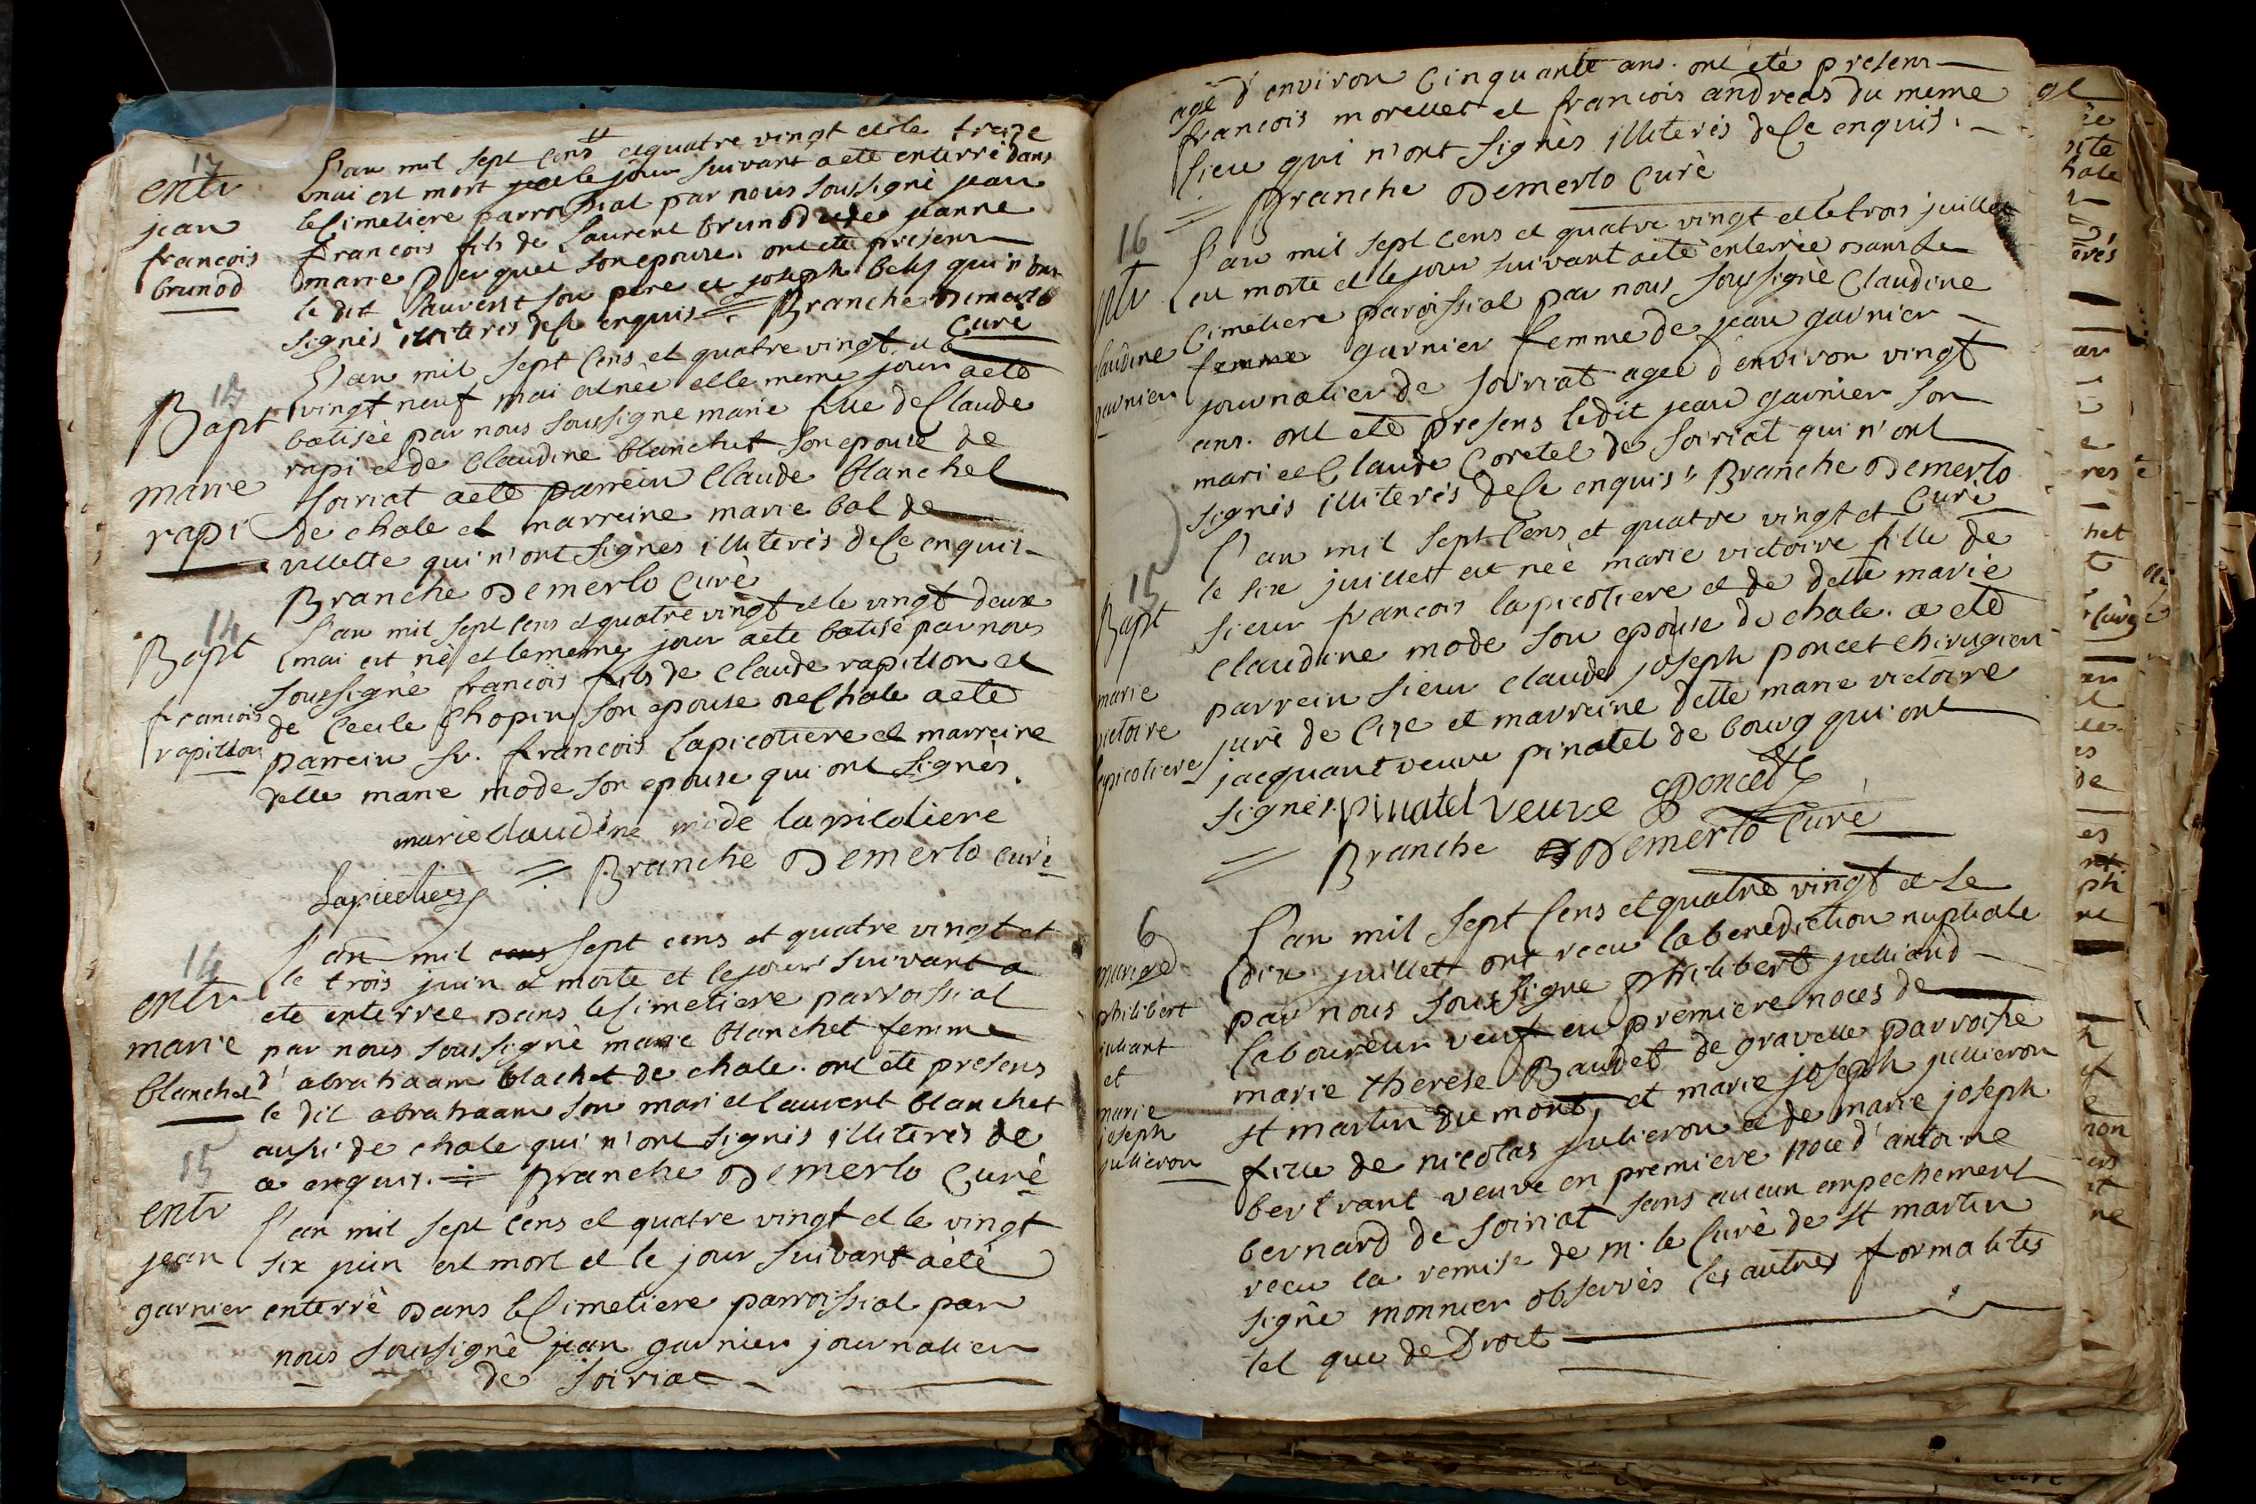 17
entr
jean
francois
brunod
L'an mil sept cens et quatre vingt et le treize
mai est mort et le jour suivant a eté enterré dans
le cimetiere parroissial par nous soussigné jean
francois fils de laurent brunod et de jeanne
marie son epouse. ont eté presens
le dit laurent son pere et joseph bely qui n'ont
signés illiterés de ce enquis = Branche Demerlo
curé
13
Bapt
marie
rapi
L'an mil sept cens et quatre vingt et le
vingt neuf mai est née et le meme jour a eté
batisée par nous soussigné marie fille de Claude
rapi et de Claudine blanchet son epouse de
soiriat a eté parrein Claude blanchet
de chale et marreine marie bal de
villette qui n'ont signes illiterés de ce enquis
Branche Demerlo curé
14
Bapt
francois
rapillon
L'an mil sept cens et quatre vingt et le vingt deux
mai est né et le meme jour a eté batisé par nous
soussigné francois fils de Claude rapillon et
de Cecile Chopin son epouse de Chale a eté
parrein sr. francois lapicotiere et marreine
delle marie mode son epouse qui ont signés.
marie claudine mode lapicotiere
= Branche Demerlo curé
Lapicotiere
14
entr
marie
blanchet
L'an mil sept cens et quatre vingt et
le trois juin est morte et le jour suivant a
eté enterrée dans le cimetiere parroissial
par nous soussigné marie blanchet femme
d'abrahaam blachet de chale. ont eté presens
le dit abrahaam son mari et laurent blanchet
aussi de chale qui n'ont signés illiterés de
ce enquis. = Branche Demerlo Curé
15
entr
jean
garnier
L'an mil sept cens et quatre vingt et le vingt
six juin est mort et le jour suivant a eté
enterré dans le cimetiere parroissial par
nous soussigné jean garnier journalier
de soiriat
agé d'environ cinquante ans. ont eté presens
francois morellet et francois andreas du meme
lieu qui n'ont signés illiterés de ce enquis.
= Branche Demerlo curé
16
entr
claudine
garnier
L'an mil sept cens et quatre vingt et le trois juillet
est morte et le jour suivant a eté enterrée dans le
cimetiere paroissial par nous soussigné Claudine
femme garnier femme de jean garnier
journalier de soiriat agee d'environ vingt
ans. ont eté presens ledit jean garnier son
mari et Claude Coretel de soiriat qui n'ont
signés illiterés de ce enquis Branche Demerlo
curé
15
Bapt
marie
victoire
lapicotiere
L'an mil sept cens et quatre vingt et
le six juillet est née marie victoire fille de
sieur francois lapicotiere et de delle marie
Claudine mode son epouse de chale. a eté
parrein sieur claude joseph poncet chirugien
juré de Cize et marreine delle marie victoire
jacquant veuve pinatel de bourg qui ont
signés. pinatel veuve Poncet
= Branche Demerlo Curé
6
mariage
philibert
juliant
et
marie
joseph
julieron
L'an mil sept cens et quatre vingt et le
dix juillet ont recu la benediction nuptiale
par nous soussigné philibert julliand
laboureur veuf en premiere noces de
marie therese Baudet de gravelle parroisse
st martin du mont, et marie joseph jullieron
fille de nicolas julieron et de marie joseph
bertrant veuve en premiere noce d'antoine
bernard de soiriat sans aucun empechement
recu la remise de m. le curé de st martin
signé monnier observés les autres formalités
tel que de Droit